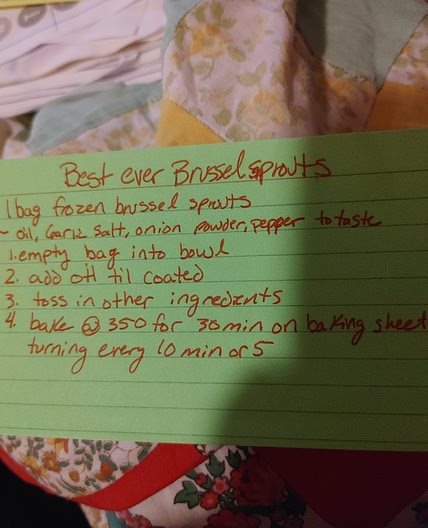 Best ever Brussel sprouts
1 bag frozen brussel sprouts
- oil, Garlic Salt, onion powder, pepper to taste
1. empty bag into bowl
2. add oil til coated
3. toss in other ingredients
4. bake @ 350 for 30 min on baking sheet
turning every 10 min or 5